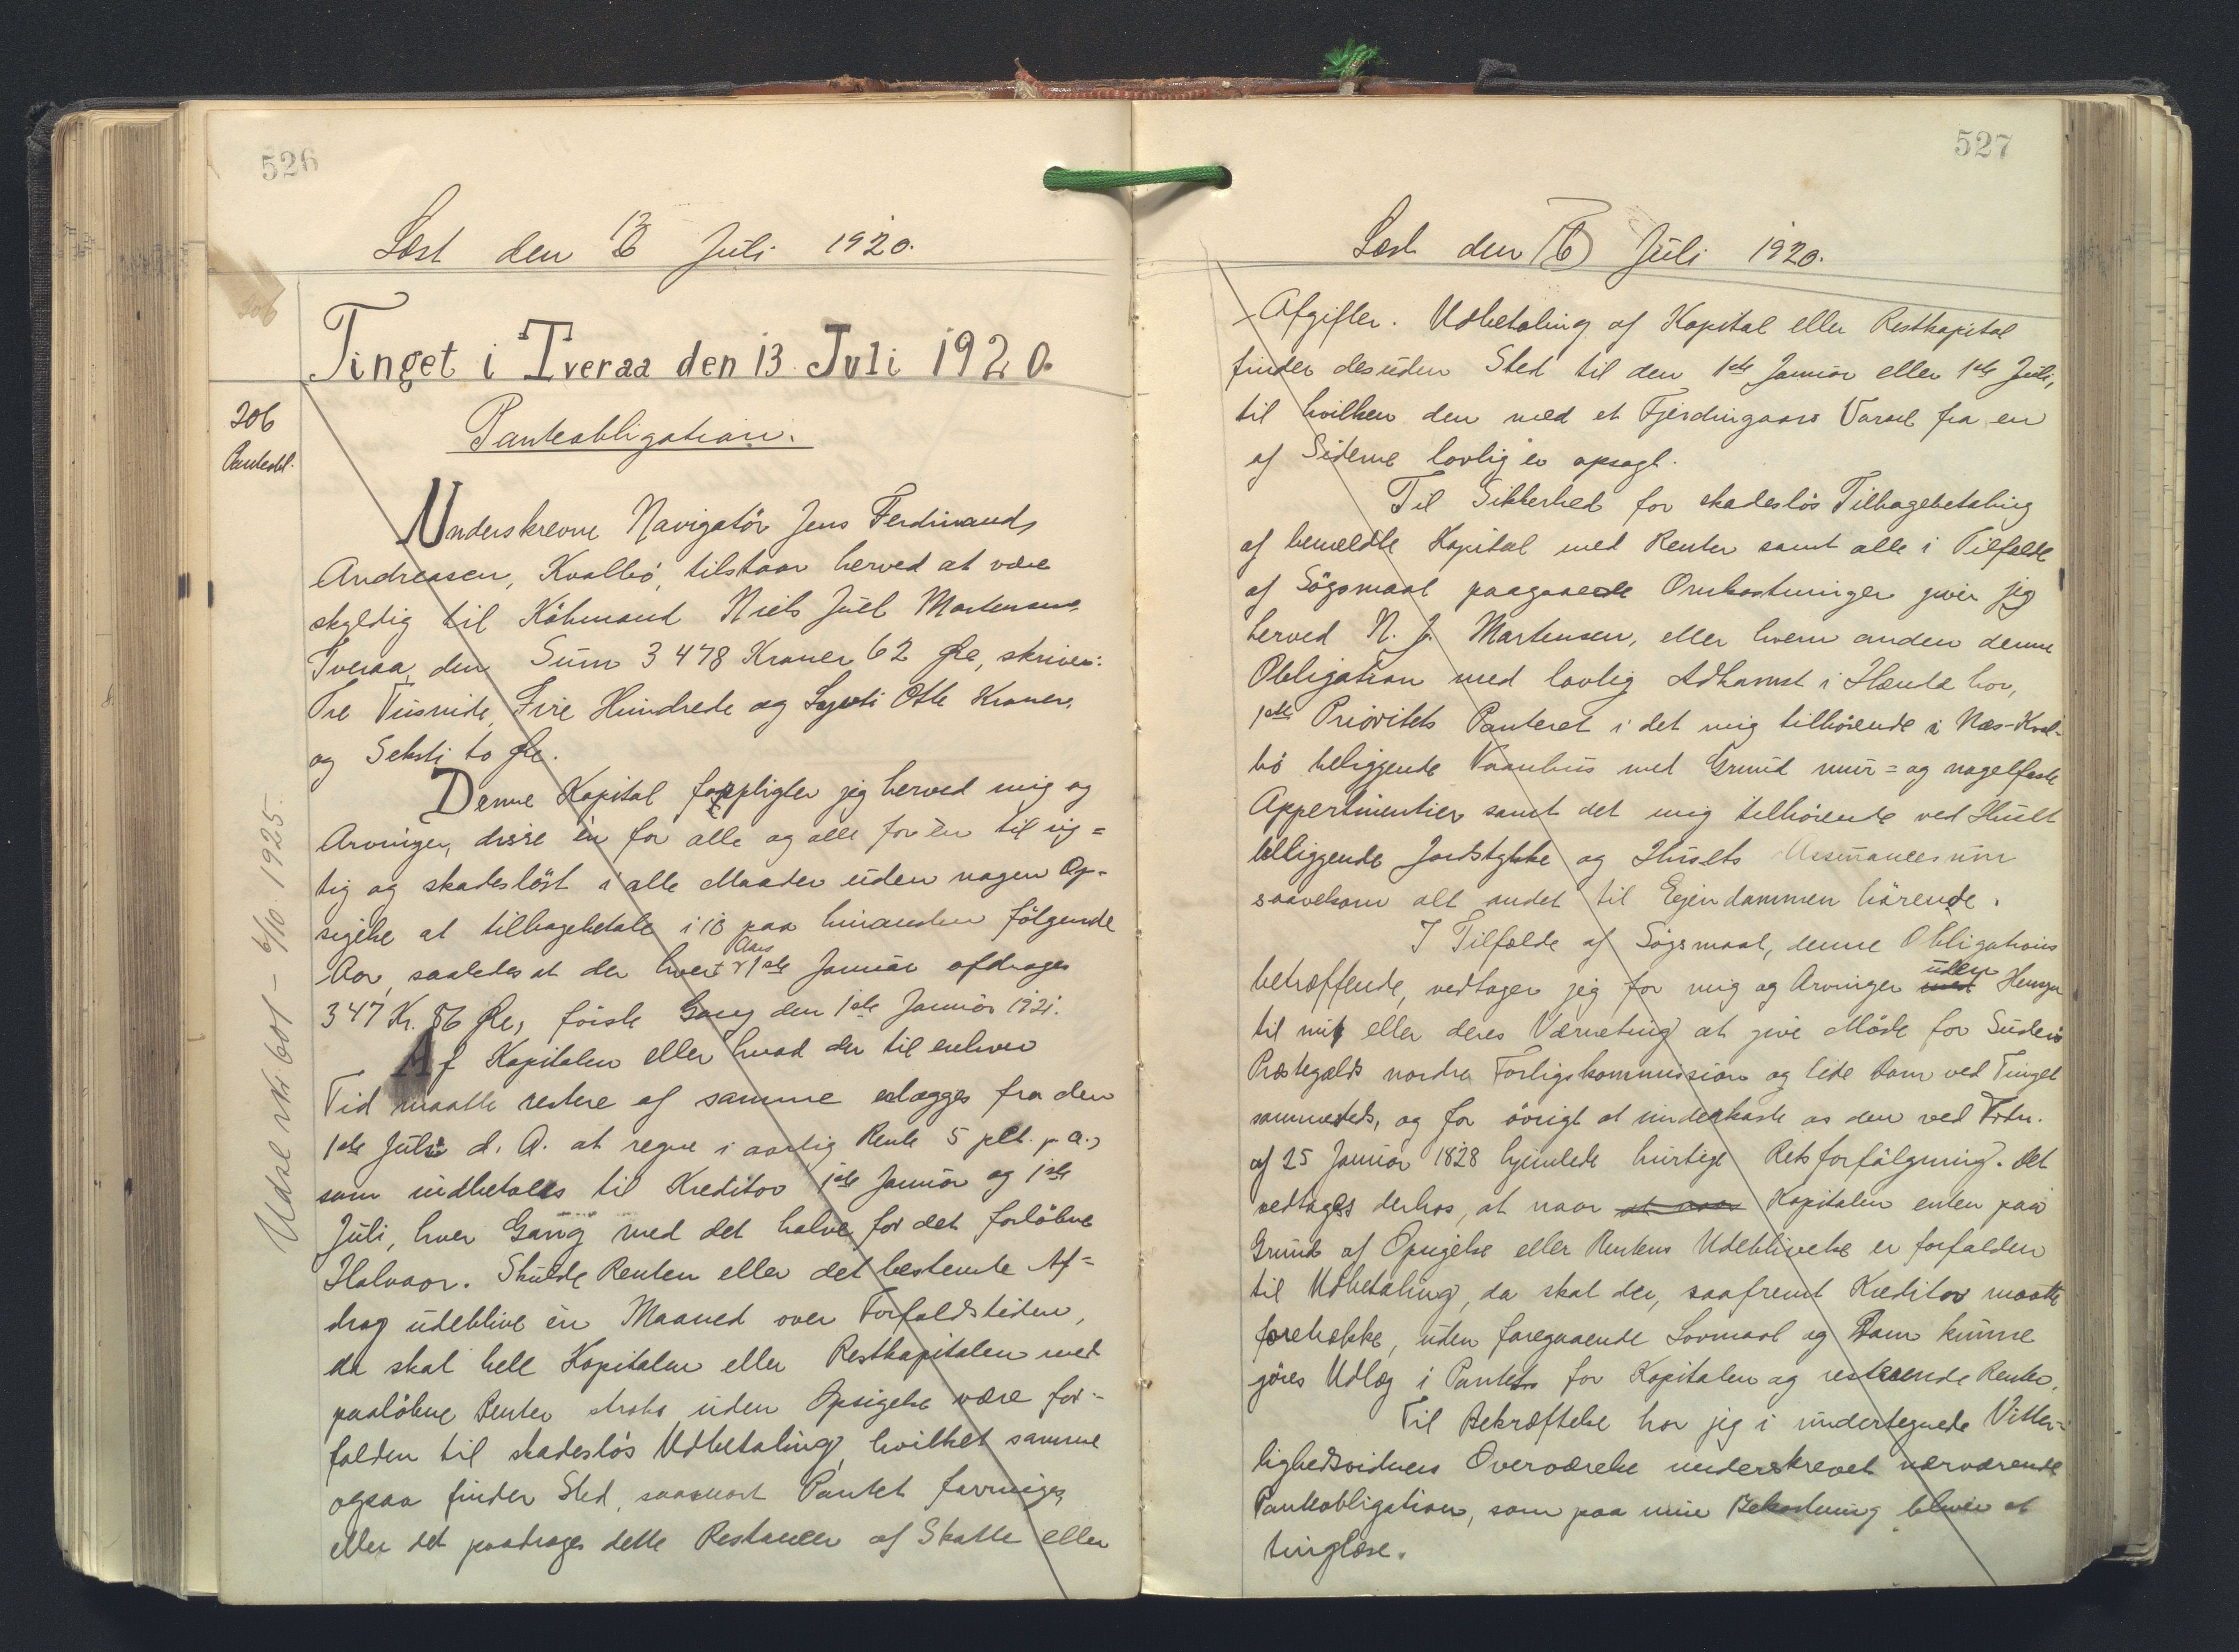 526
Læst den 13 Juli 1920.
206
Tinget i Tveraa den 13. Juli 1920.
206
Panteobl.
Panteobligation.
Underskrevne Navigatör Jens Ferdinand
Andreasen, Kvalbö, tilstaar herved at være
skyldig til Köbmand Niels Juel Mortensen,
Tveraa, den Sum 3478 Kroner 62 Øre, skriver:
Tre Tusinde, Fire Hundrede og Syvti Otte Kroner,
og Seksti to Øre.
Denne Kapital forpligter jeg herved mig og
Arvinger, disse én for alle og alle for én til rig=
tig og skadeslöst i alle Maader uden nogen Op-
sigelse at tilbagebetale i 10 paa hinanden fölgende
Aar, saaledes at der hvert Aars 1ste Januar afdrages
347 Kr. 86 Øre, förste Gang den 1ste Januar 1921.
Af Kapitalen eller hvad der til enhver
Tid maatte restere af samme erlægges fra den
1ste Juli d. A. at regne i aarlig Rente 5 pCt. p. a.,
som indbetales til Kreditor 1ste Januar og 1ste
Juli, hver Gang med det halve for det forlöbne
Halvaar. Skulde Renten eller det bestemte Af=
drag udeblive én Maaned over Forfaldstiden,
da skal hele Kapitalen eller Restkapitalen med
paalöbne Renter straks uden Opsigelse være for=
falden til skadeslös Udbetaling, hvilket samme
ogsaa finder Sted, saasnart Pantet forringes,
eller det paadrages dette Restancer af Skatte eller
Udslettet - 6/10. 1925.
527
Læst den 13 Juli 1920.
Afgifter. Udbetaling af Kapital eller Restkapital
finder desuden Sted til den 1ste Januar eller 1ste Juli,
til hvilken den med et Fjerdingaars Varsel fra en
af Siderne lovlig er opsagt.
Til Sikkerhed for skadeslös Tilbagebetaling
af bemeldte Kapital med Renter samt alle i Tilfælde
af Sögsmaal paagaaede Omkostninger giver jeg
herved N. J. Mortensen, eller hvem anden denne
Obligation med lovlig Adkomst i Hænde har,
1ste Prioritets Panteret i det mig tilhörende i Næs-Kval-
bö beliggende Vaanhus med Grund mur= og nagelfaste
Appertinentier samt det mig tilhörende ved Huset
belliggende Jordstykke og Husets Assurancesum
saavelsom alt andet til Ejendommen hörende.
I Tilfælde af Sögsmaal, denne Obligations
betræffende, vedtager jeg for mig og Arvinger uden Hensyn
til mit eller deres Værneting at give Möde for Suderö
Præstegælds nordre Forligskommission og lide Dom ved Tinget
sammesteds, og for övrigt at underkaste os den ved Frdn.
af 25 Januar 1828 hjemlede hurtige Retsforfölgning. Det
vedtages derhos, at naar at naar Kapitalen enten paa
Grund af Opsigelse eller Rentens Udeblivelse er forfalden
til Udbetaling, da skal der, saafremt Kreditor maatte
foretrække, uden foregaaende Lovmaal og Dom kunne
göres Udlæg i Pantet for Kapitalen og resterende Renter.
Til Bekræftelse har jeg i undertegnede Vitter=
lighedsvidners Overværelse underskrevet nærværende
Panteobligation, som paa min Bekostning bliver at
tinglæse.